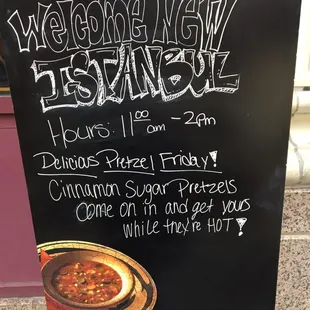 Welcome New
ISTANBUL
Hours: 11:00 am - 2pm
Delicious Pretzel Friday!
Cinnamon Sugar Pretzels
Come on in and get yours
while they're HOT!